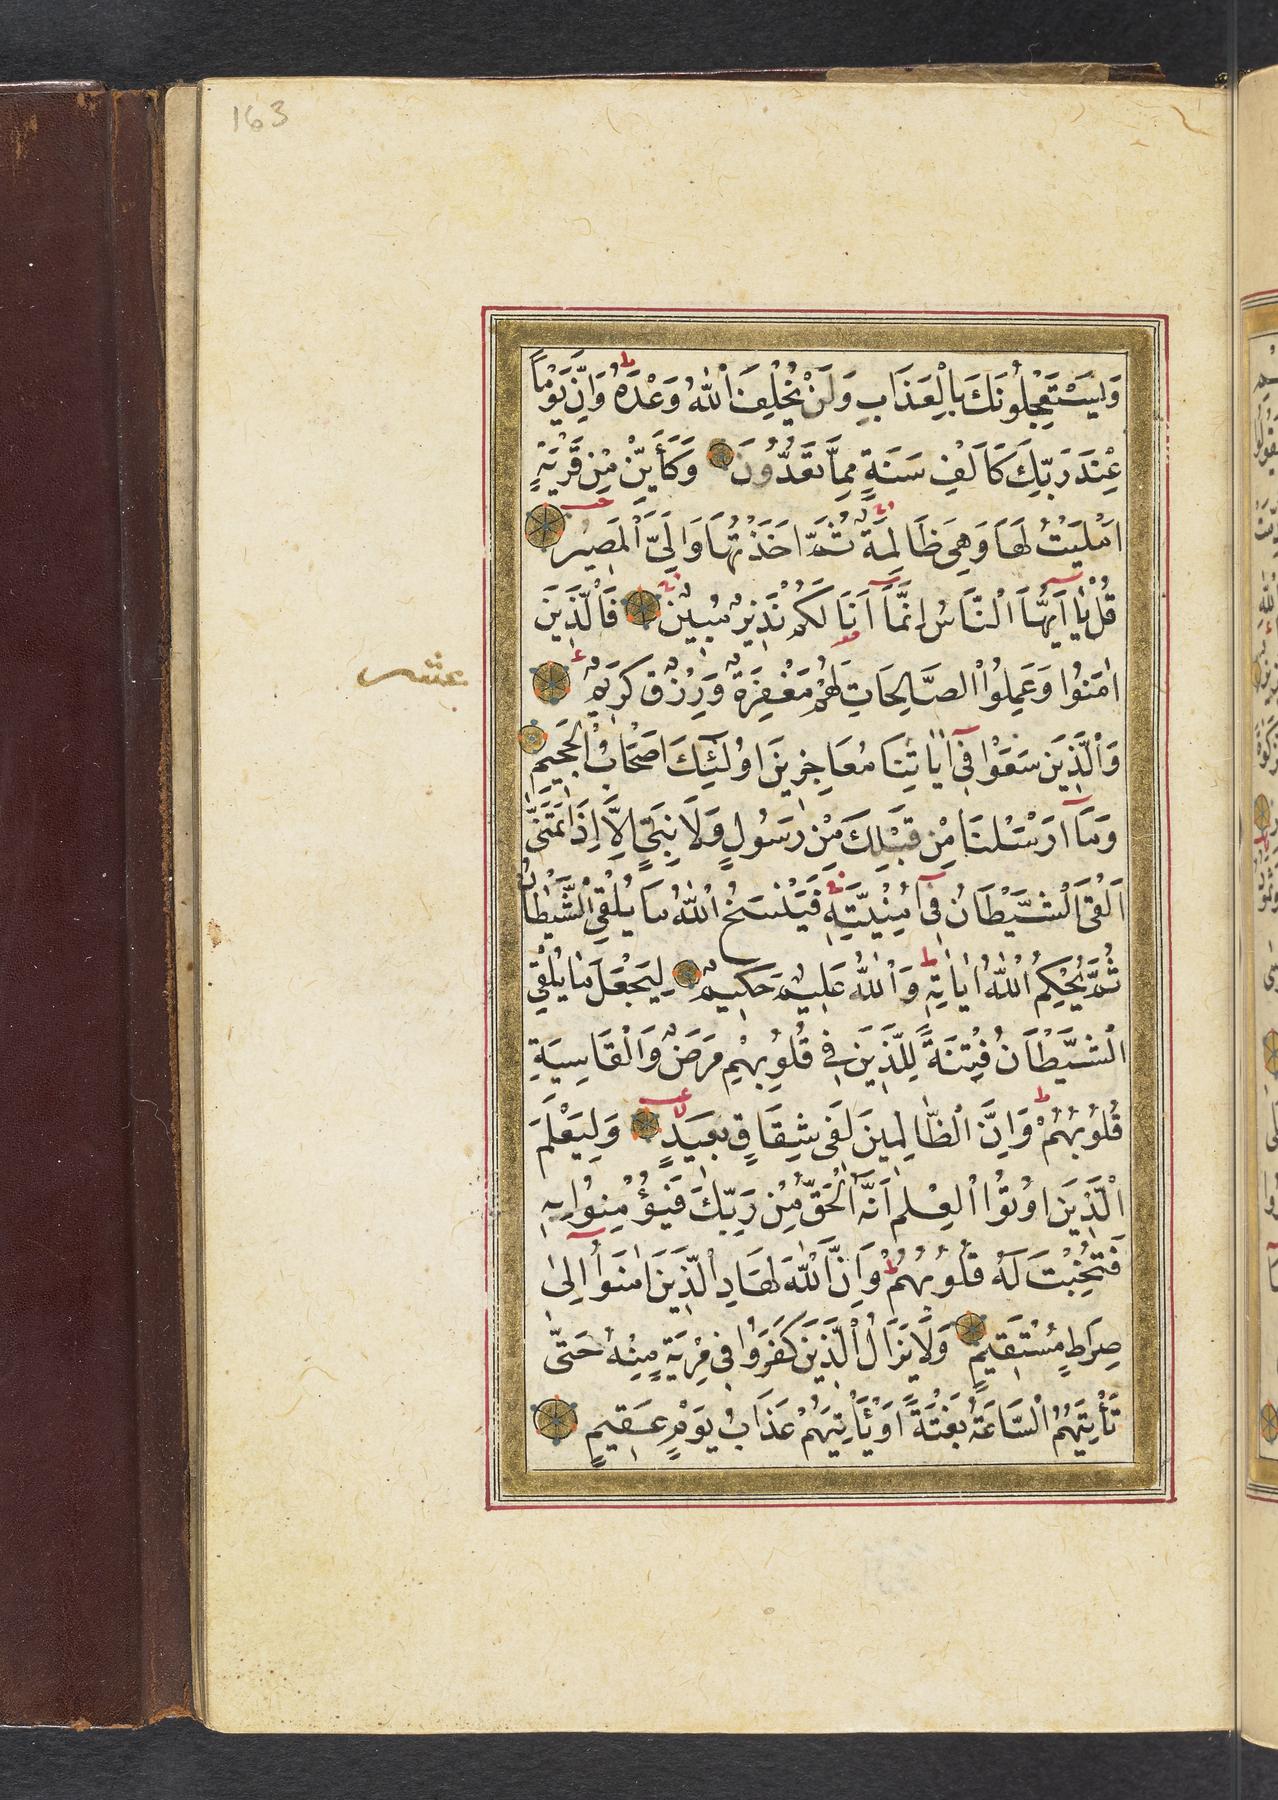 163
وَيَسْتَعْجِلُونَكَ بِالْعَذَابِ وَلَنْ يُخْلِفَ اللّٰهُ وَعْدَهُ وَاِنَّ يَوْماً
عِنْدَ رَبِّكَ كَاَلْفِ سَنَةٍ مِمَّا تَعُدُّونَ وَكَأَيِّنْ مِنْ قَرْيَةٍ
اَمْلَيْتُ لَهَا وَهِيَ ظَالِمَةٌ ثُمَّ اَخَذْتُهَا وَاِلَيَّ الْمَصِيرُ
قُلْ يَا اَيُّهَا النَّاسُ اِنَّمَا اَنَا لَكُمْ نَذِيرٌ مُبِينٌ فَالَّذِينَ
اٰمَنُوا وَعَمِلُوا الصَّالِحَاتِ لَهُمْ مَغْفِرَةٌ وَرِزْقٌ كَرِيمٌ
عشر
وَالَّذِينَ سَعَوْا فِي اٰيَاتِنَا مُعَاجِزِينَ اُولٰئِكَ اَصْحَابُ الْجَحِيمِ
وَمَا اَرْسَلْنَا مِنْ قَبْلِكَ مِنْ رَسُولٍ وَلَا نَبِيٍّ اِلَّا اِذَا تَمَنَّى
اَلْقَى الشَّيْطَانُ فِي اُمْنِيَّتِهِ فَيَنْسَخُ اللّٰهُ مَا يُلْقِي الشَّيْطَانُ
ثُمَّ يُحْكِمُ اللّٰهُ اٰيَاتِهِ وَاللّٰهُ عَلِيمٌ حَكِيمٌ لِيَجْعَلَ مَا يُلْقِي
الشَّيْطَانُ فِتْنَةً لِلَّذِينَ فِي قُلُوبِهِمْ مَرَضٌ وَالْقَاسِيَةِ
قُلُوبُهُمْ وَاِنَّ الظَّالِمِينَ لَفِي شِقَاقٍ بَعِيدٍ وَلِيَعْلَمَ
الَّذِينَ اُوتُوا الْعِلْمَ اَنَّهُ الْحَقُّ مِنْ رَبِّكَ فَيُؤْمِنُوا بِهِ
فَتُخْبِتَ لَهُ قُلُوبُهُمْ وَاِنَّ اللّٰهَ لَهَادِ الَّذِينَ اٰمَنُوا اِلٰى
صِرَاطٍ مُسْتَقِيمٍ وَلَا يَزَالُ الَّذِينَ كَفَرُوا فِي مِرْيَةٍ مِنْهُ حَتَّى
تَأْتِيَهُمُ السَّاعَةُ بَغْتَةً اَوْ يَأْتِيَهُمْ عَذَابُ يَوْمٍ عَقِيمٍ